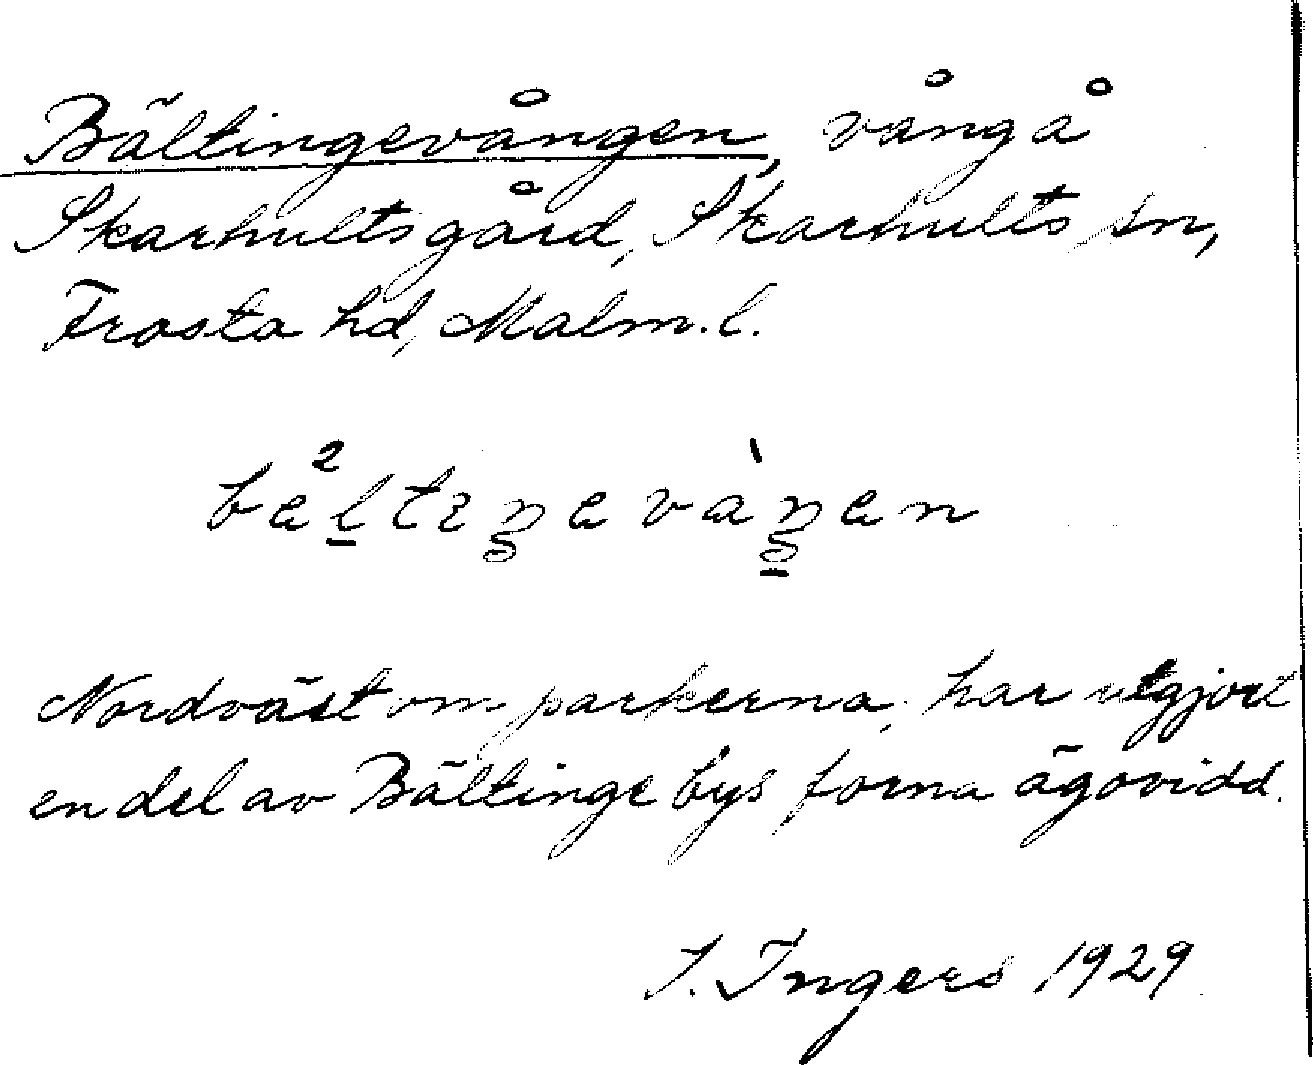 Bältingevången, vång å
Skarhultsgård, Skarhults sn,
Frosta hd, Malm. l.
Nordväst om parkerna, har utgjort
en del av Bältinge bys forna ägovidd.
I. Ingers 1929